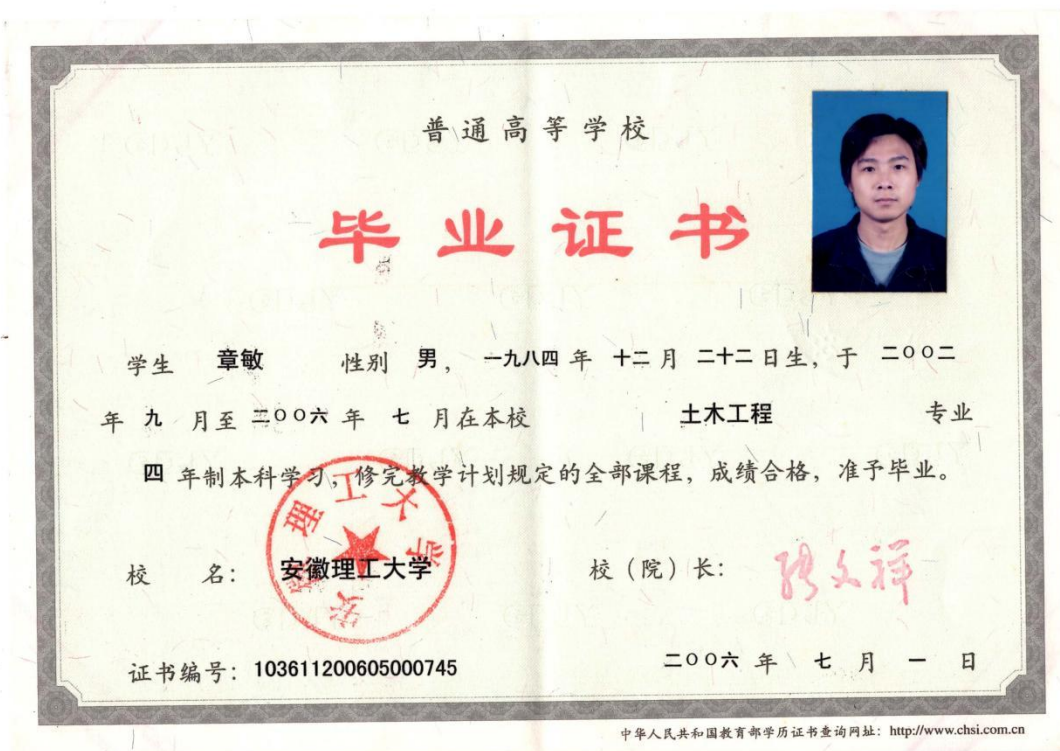 普通高等学校
毕业证书
学生 章敏 性别 男，一九八四 年 十二 月 二十二 日生，于 二〇〇二
年 九 月至 二〇〇六 年 七 月在本校 土木工程 专业
四 年制本科学习，修完教学计划规定的全部课程，成绩合格，准予毕业。
安徽理工大学
校 名：安徽理工大学 校（院）长：张文祥
证书编号：103611200605000745 二〇〇六 年 七 月 一 日
中华人民共和国教育部学历证书查询网址：http://www.chsi.com.cn